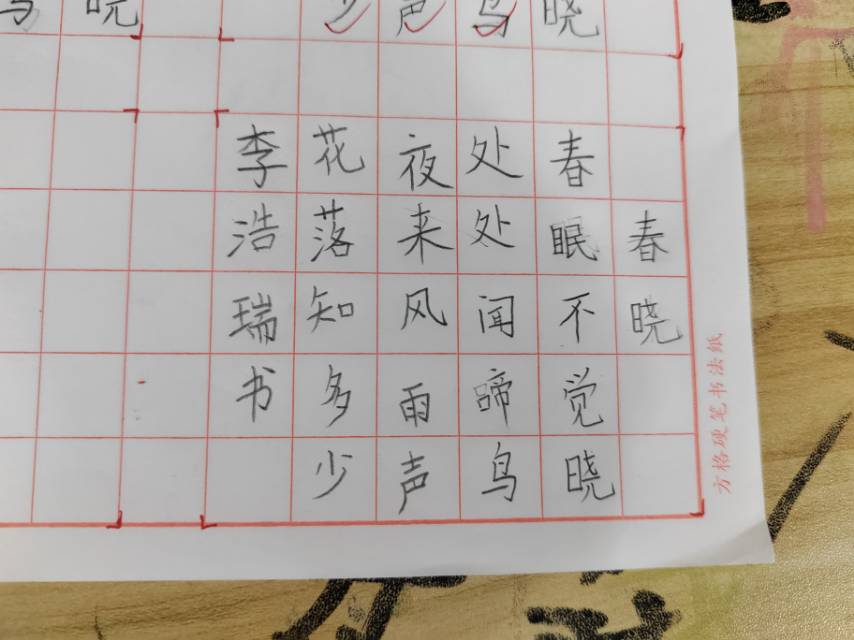 晓
鸟
声
少
晓
鸟
春晓
春眠不觉晓
处处闻啼鸟
夜来风雨声
花落知多少
李浩瑞书
方格硬笔书法纸